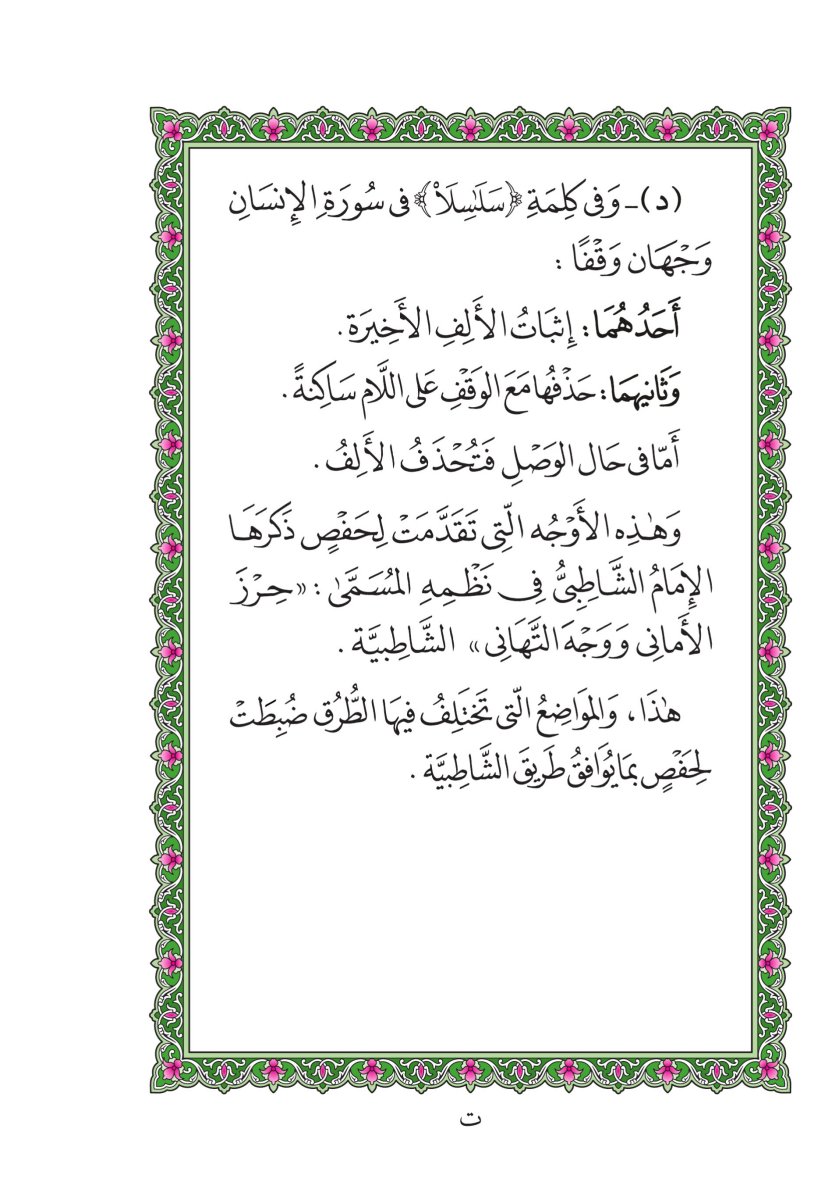 (د)ـ وَفى كَلِمَةِ ﴿سَلَٰسِلَا۟﴾ فى سُورَةِ الإِنسَانِ
وَجْهَان وَقْفًا :
أَحَدُهُمَا: إِثبَاتُ الأَلِفِ الأَخِيرَة.
وَثَانيهمَا: حَذْفُها مَعَ الوَقْفِ عَلى اللَّام سَاكِنةً.
أَمّا فى حَال الوَصْلِ فَتُحْذَفُ الأَلِفُ.
وَهٰذِه الأَوْجُه الَّتِى تَقَدَّمَتْ لِحَفْصٍ ذَكَرَهَا
الإِمَامُ الشَّاطِبِىُّ فِى نَظْمِهِ المُسَمَّىٰ : «حِرْزَ
الأَمانِى وَوَجْهَ التَّهَانِى» الشَّاطِبيَّة.
هٰذَا، وَالموَاضِعُ الَّتى تَختَلِفُ فِيهَا الطُّرُق ضُبِطَتْ
لِحَفْصٍ بمَا يُوَافقُ طَرِيقَ الشَّاطِبيَّة.
ت